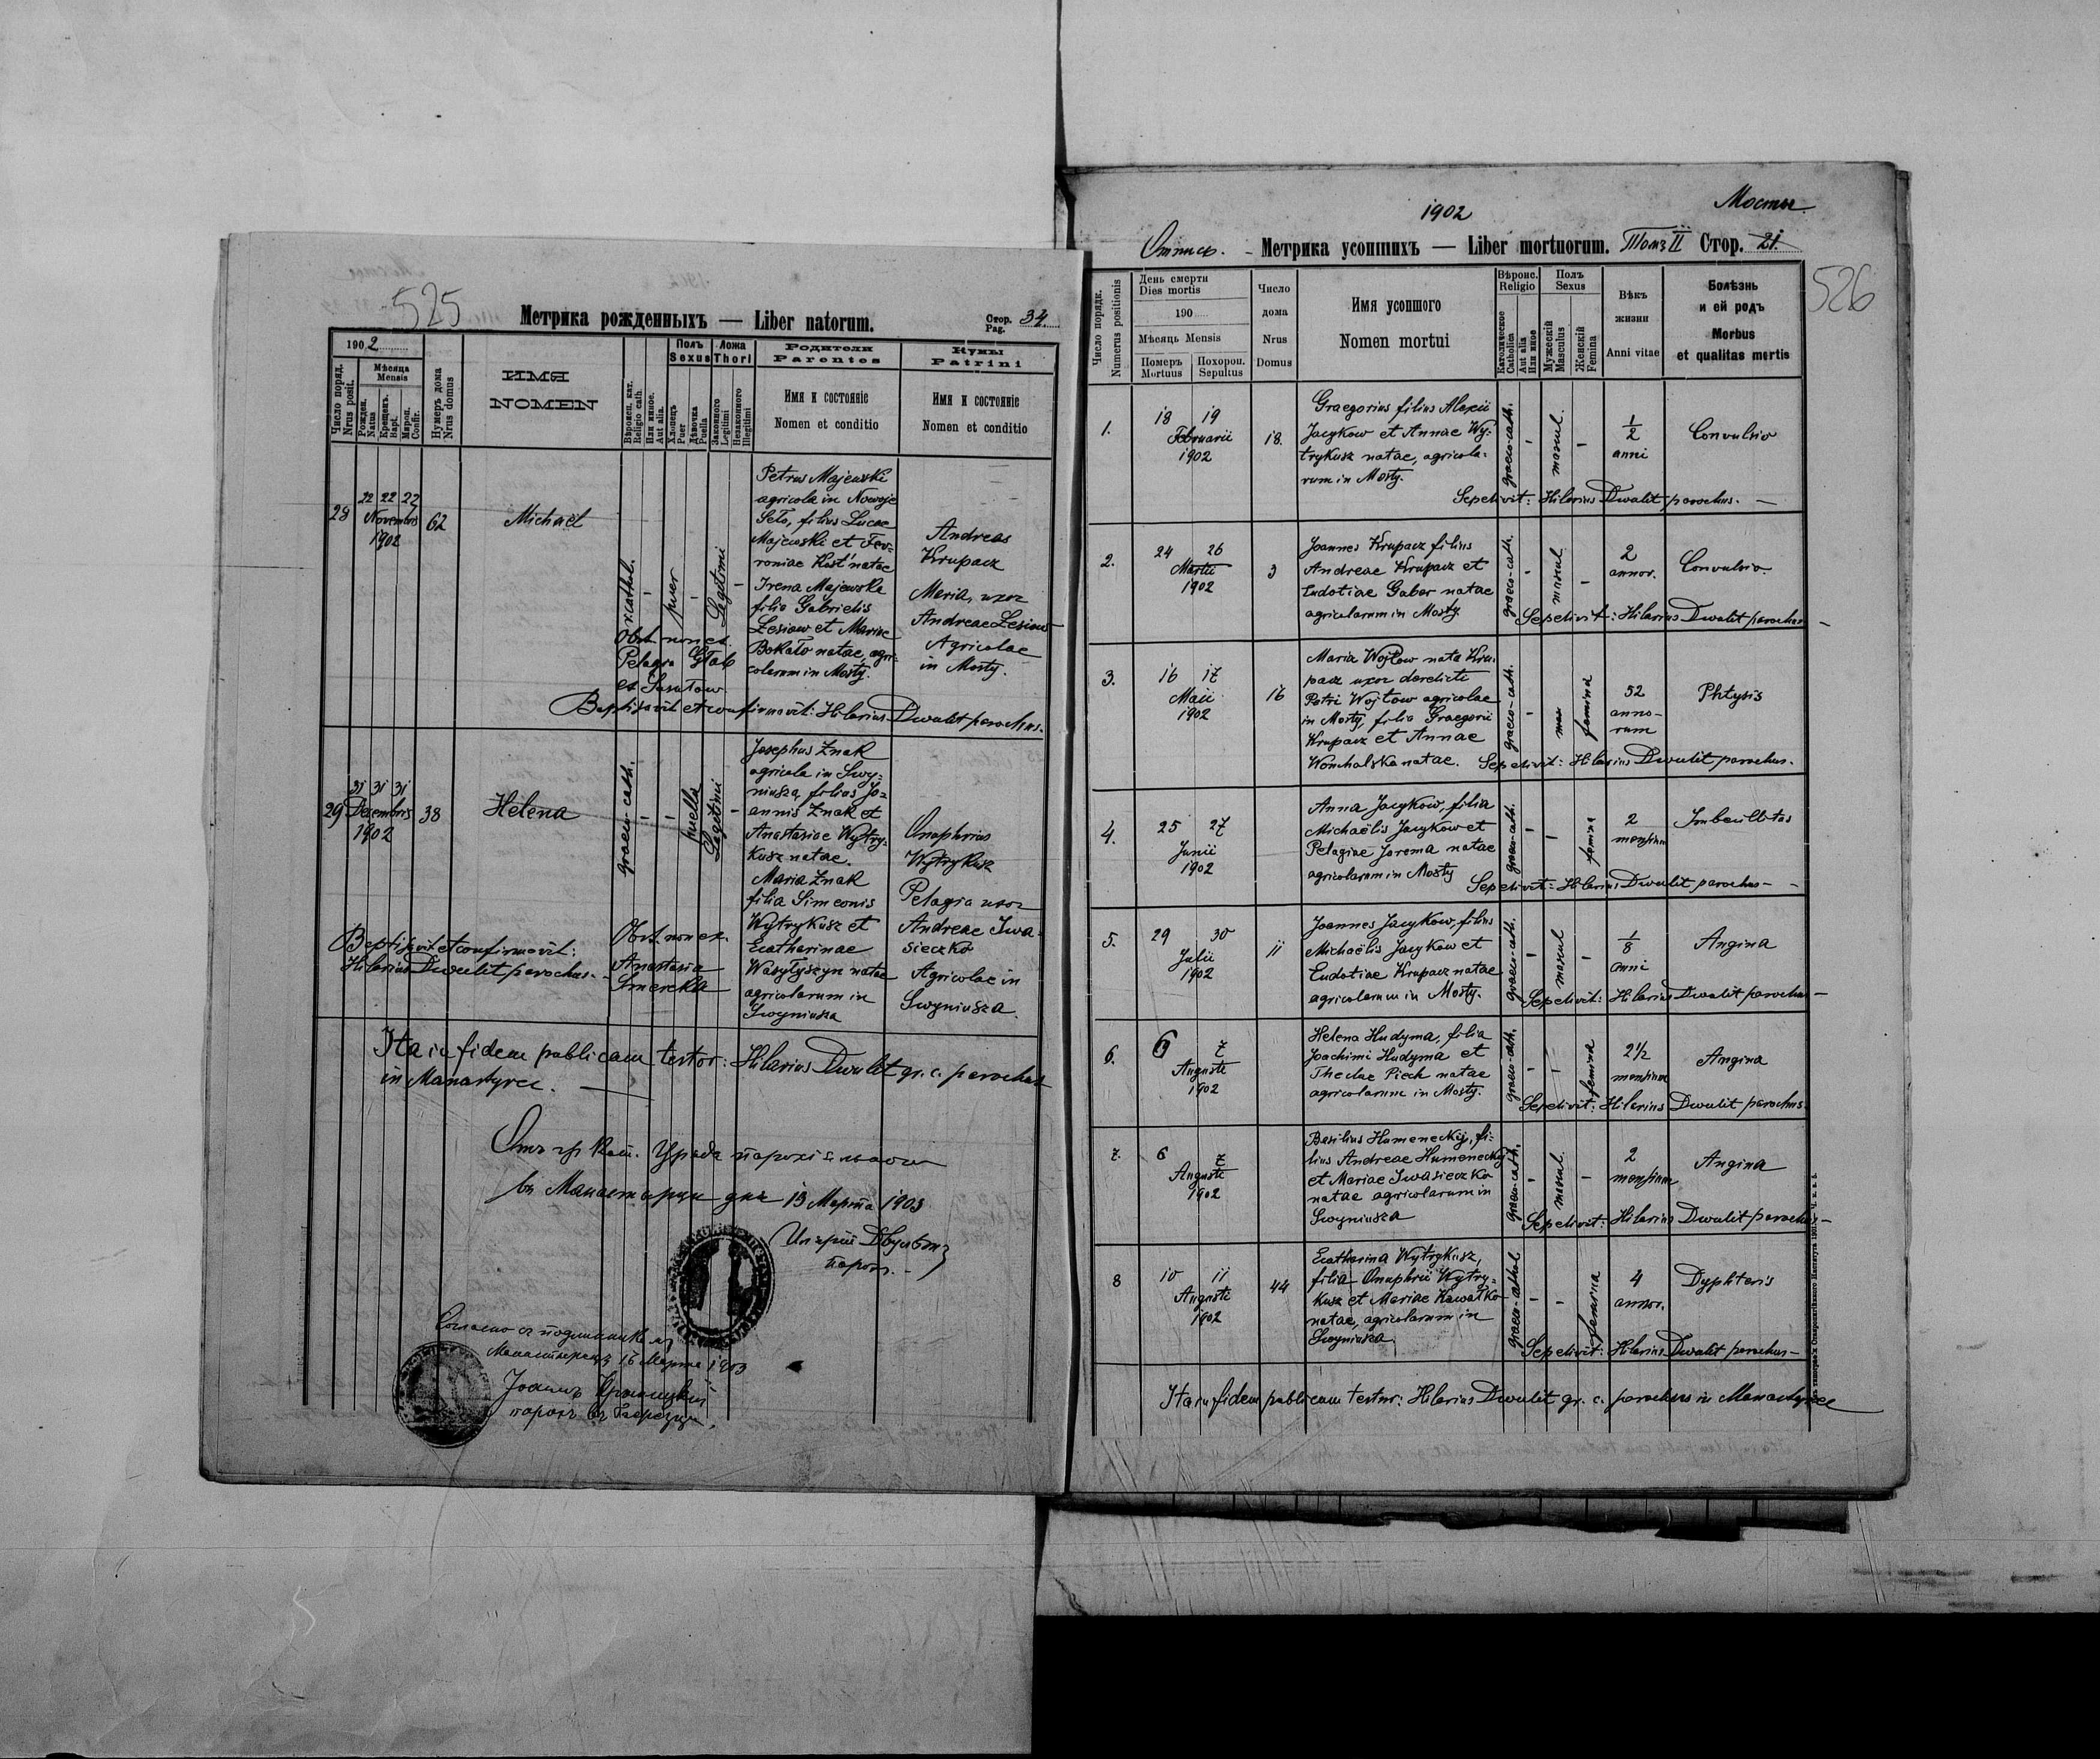 525
Метрика рожденныхъ — Liber natorum.
Стор.
Pag. 34.
1902
Число поряд.
Nrus posit.
Мѣсяца
Mensis
Рожден.
Natus
Крещенъ.
Bapt.
Миров.
Confir.
Нумеръ дома
Nrus domus
ИМЯ
NOMEN
Вѣроисп. кат.
Religio cath.
Или иное.
Aut alia.
Полъ
Sexus
Хлопецъ
Puer
Дѣвочка
Puella
Ложа
Thori
Законного
Legitimi
Незаконного
Illegitimi
Родители
Parentes
Имя и состояніе
Nomen et conditio
Кумы
Patrini
Имя и состояніе
Nomen et conditio
28
22 22 22
Novembris
1902
62
Michaël
r.cathol.
-
puer
-
Legitimi
-
Petrus Majewski
agricola in Nowoje
Seło, filius Lucae
Majewski et Fev-
roniae Kost' natae
Irena Majewska
filia Gabrielis
Łesiow et Mariae
Bokało natae, agri-
colarum in Mosty.
Andreas
Krupacz
Maria, uxor
Andreae Łesiow
Agricolae
in Mosty.
Obst. non ex.
Pelagia Głab
et Sasułow
Baptisavit et confirmavit: Hilarius Dwulit parochus.
29
31 31 31
Decembris
1902
38
Helena
graeco-cath.
-
-
puella
Legitimi
-
Josephus Znak
agricola in Swy-
niusza, filius Jo-
annis Znak et
Anastasiae Wytry-
kusz natae.
Maria Znak
filia Simeonis
Wytrykusz et
Ecatharinae
Wasyłyszyn natae
agricolarum in
Swyniusza
Onuphrius
Wytrykusz
Pelagia uxor
Andreae Iwa-
sieczko
Agricolae in
Swyniusza.
Obst. non ex.
Anastasia
Smerekla
Baptisavit et confirmavit:
Hilarius Dwulit parochus.-
Ita in fidem publicam testor: Hilarius Dwulit gr. c. parochus
in Manastyrec. —
Отъ гр. кат. Уряда парохіяльного
въ Манастырци дня 15 Марта 1903
Иларій Двулитъ
парох. -
Согласно съ подлинникомъ
Манастырецъ 16 Марта 1903
Іоаннъ
парохъ въ
1902
Мосты.
Отпись. - Метрика усопшихъ — Liber mortuorum. Томъ II Стор. 21.
526
Число порядк.
Numerus positionis
День смерти
Dies mortis
190
Мѣсяць Mensis
Померъ
Mortuus
Похорон.
Sepultus
Число
дома
Nrus
Domus
Имя усопшого
Nomen mortui
Вѣроис.
Religio
Католическое
Catholica
Aut alia
Или иное
Полъ
Sexus
Мужескій
Masculus
Женскій
Femina
Вѣкъ
жизни
Anni vitae
Болѣзнь
и ей родъ
Morbus
et qualitas mortis
1.
18 19
Februarii
1902
18.
Graegorius filius Alexii
Jacykow et Annae Wy-
trykusz natae, agricola-
rum in Mosty.
graeco-cath.
-
mascul.
-
1/2
anni
Convulsio
Sepelivit: Hilarius Dwulit parochus. —
2.
24 26
Martii
1902
3
Joannes Krupacz filius
Andreae Krupacz et
Eudotiae Gaber natae
agricolarum in Mosty.
graeco-cath.
-
mascul
-
2
annor.
Convulsio.
Sepelivit: Hilarius Dwulit parochus —
3.
16 17
Maii
1902
16
Maria Wojtow nata Kru-
pacz uxor derelicti
Petri Wojtow agricolae
in Mosty, filia Graegorii
Krupacz et Annae
Komhalska natae.
graeco-cath.
-
mas
femina
52
anno-
rum
Phtysis
Sepelivit: Hilarius Dwulit parochus.
4.
25 27
Junii
1902
Anna Jacykow, filia
Michaëlis Jacykow et
Pelagiae Jarema natae
agricolarum in Mosty
graeco-cath.
-
-
femina
2
mensium
Imbecillitas
Sepelivit: Hilarius Dwulit parochus - -
5.
29 30
Julii
1902
11
Joannes Jacykow, filius
Michaëlis Jacykow et
Eudotiae Krupacz natae
agricolarum in Mosty.
graeco-cath.
-
mascul
-
1/8
anni
Angina
Sepelivit: Hilarius Dwulit parochus —
6.
6 7
Augusti
1902
Helena Hudyma, filia
Joachimi Hudyma et
Theclae Piech natae
agricolarum in Mosty.
graeco-cath.
-
-
femina
2 1/2
mensium
Angina
Sepelivit: Hilarius Dwulit parochus.
7.
6 7
Augusti
1902
Basilius Humeneckij, fi-
lius Andreae Humeneckij
et Mariae Iwasieczko
natae agricolarum in
Swyniusza
graeco-cath.
-
mascul.
-
2
mensium
Angina
Sepelivit: Hilarius Dwulit parochus —
8
10 11
Augusti
1902
44
Ecatharina Wytrykusz,
filia Onuphrii Wytry-
kusz et Mariae Kawałko
natae, agricolarum in
Swyniusza.
graeco-cathol.
-
-
femina
4
annor.
Dyphteris
Sepelivit: Hilarius Dwulit parochus —
Ita in fidem publicam testor: Hilarius Dwulit gr. c. parochus in Manastyrec